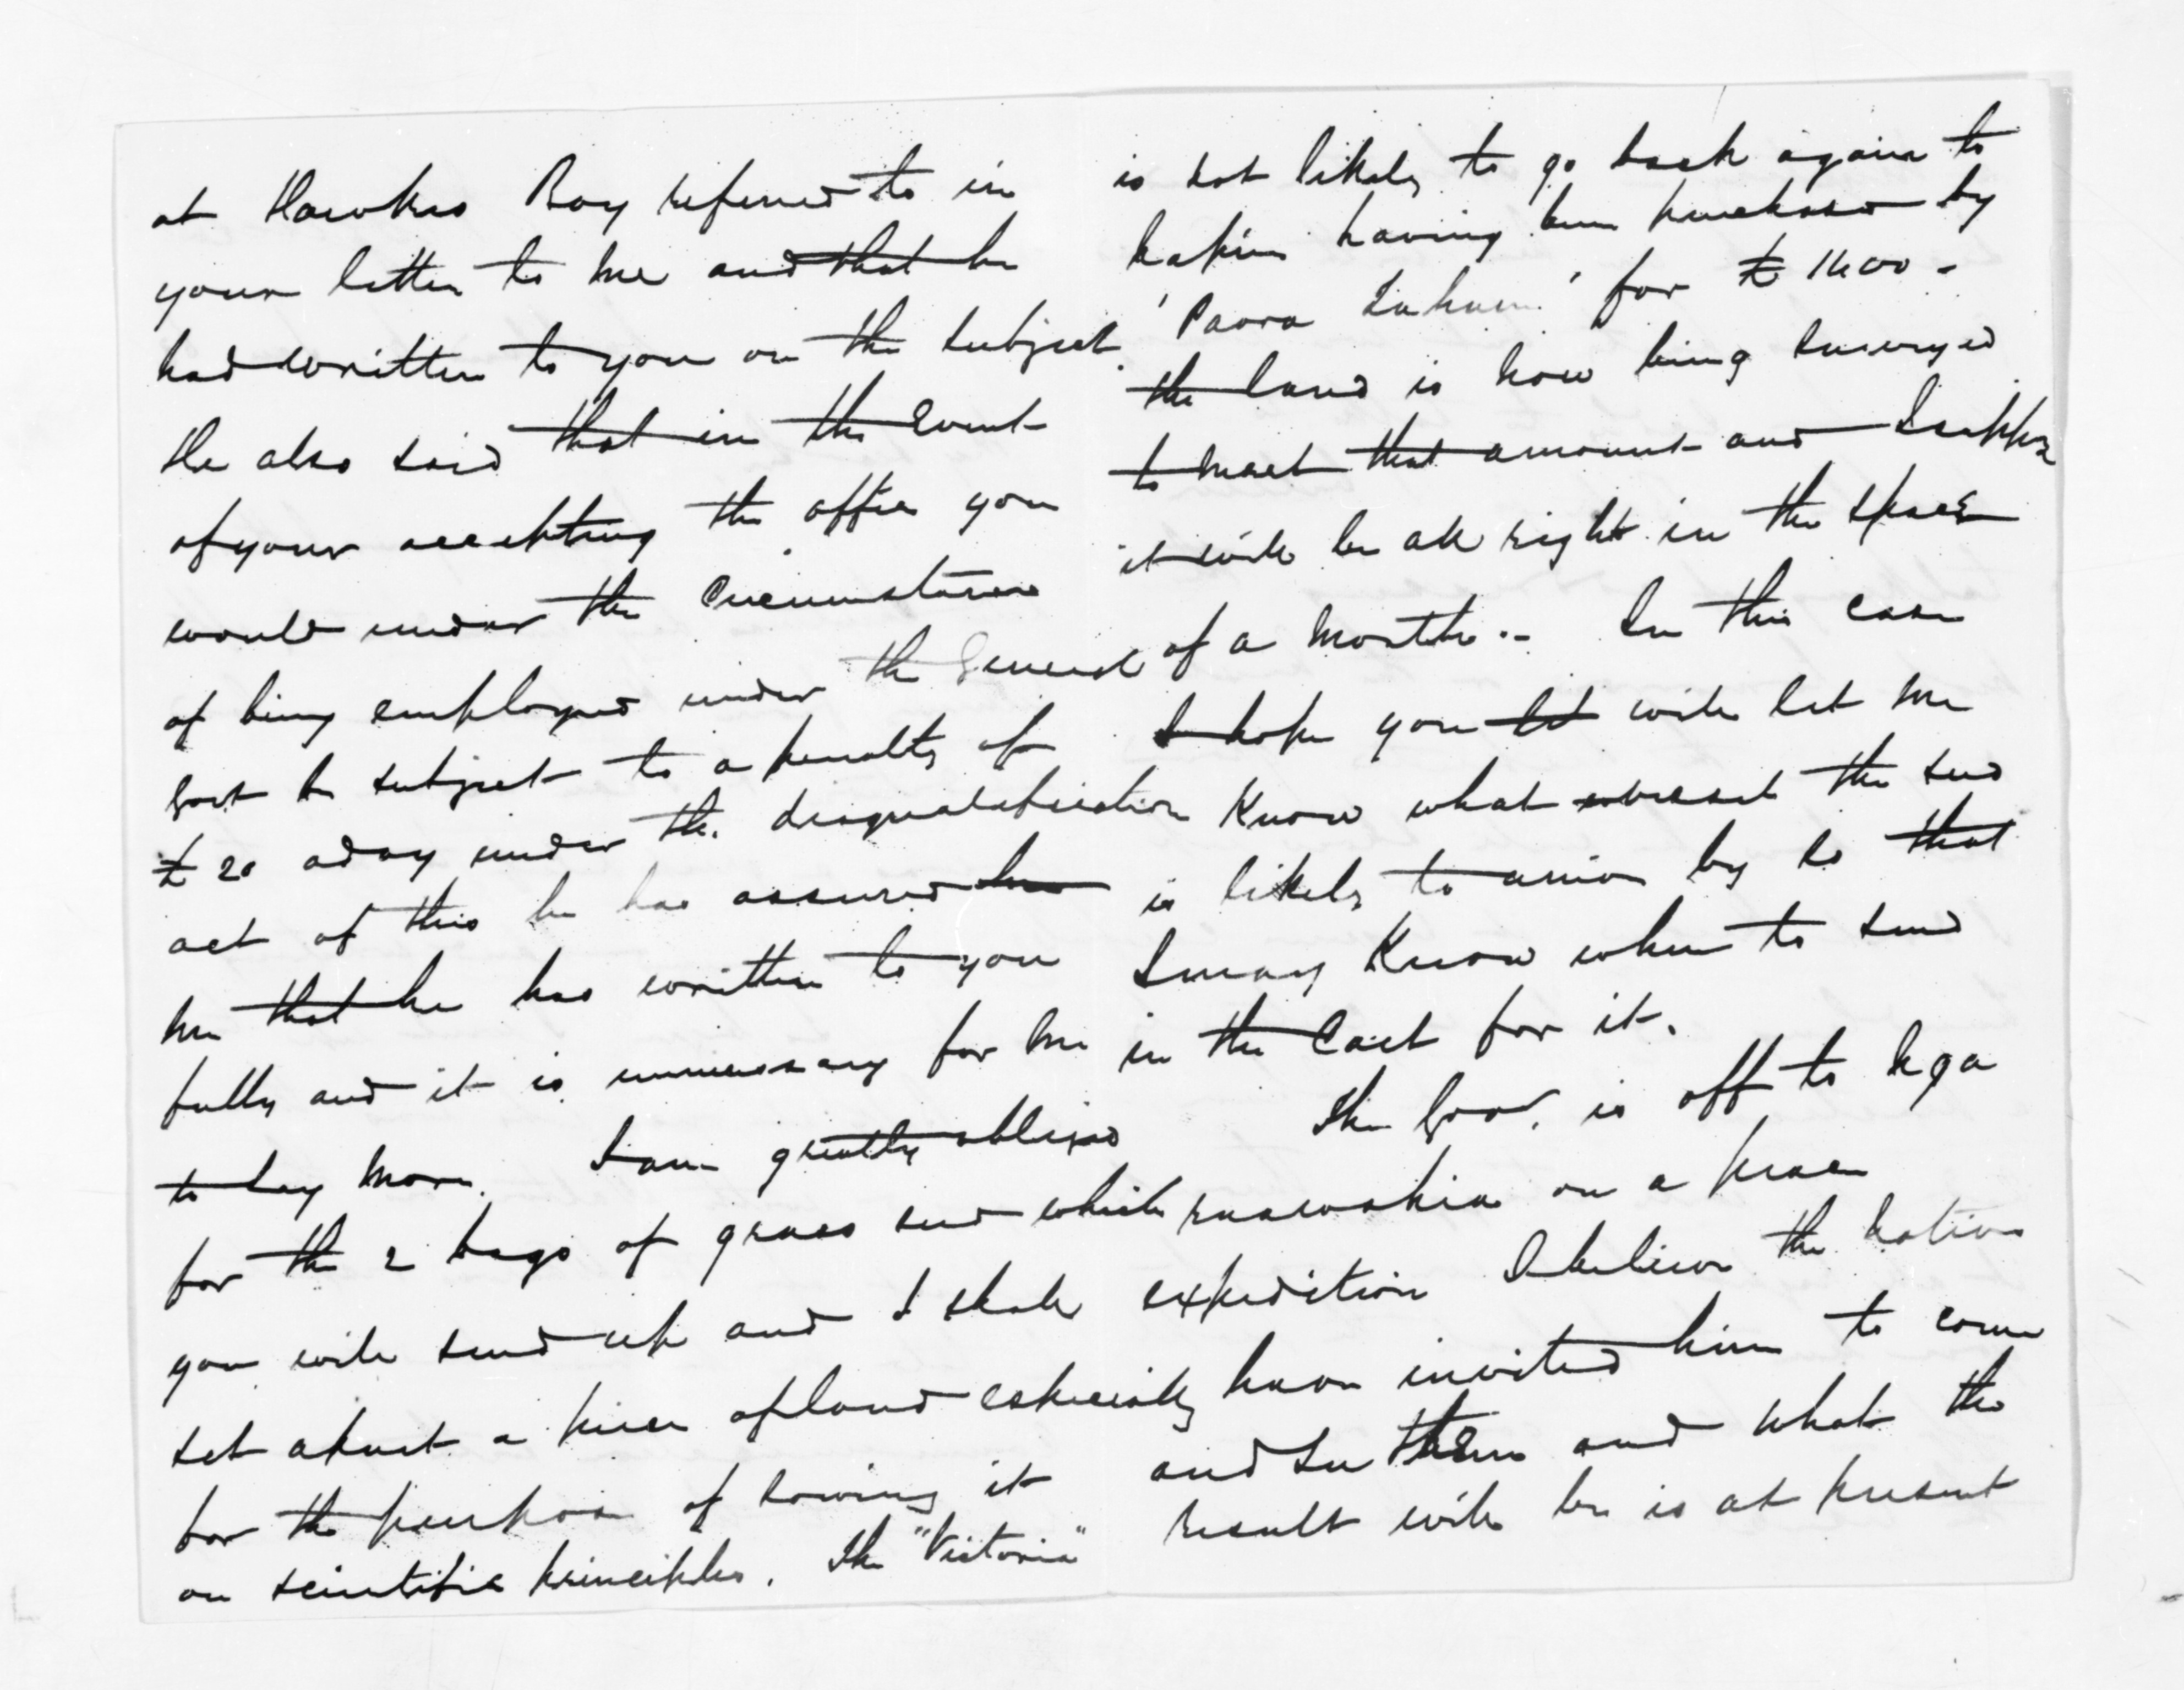 at Hawkes Bay referred to in
your letter to me and that he
had written to you on the subject.
He also said that in the event
of your accepting the office you
would under the circumstances
of being employed under the General
Govt be subject to a penalty of
£20 a day under the disqualification
act of this he has assured
me that he has written to you
fully and it is unnecessary for me
to say more. I am greatly obliged
for the 2 bags of grass seed which
you will send up and I shall
set apart a piece of land especially
for the purpose of sowing it
on scientific principles. The "Victoria"
is not likely to go back again to
Napier having been purchased by
'Paora for £1400 -
the land is now being surveyed
to meet that amount and I suppose
it will be all right in the space
of a month.- In this case
I hope you will let me
know what vessel the seed
is likely to arrive by so that
I may know when to send
in the Cart for it.
The Govr. is off to Nga
ruawahia on a peace
expedition I believe the natives
have invited him to come
and see them and what the
result will be is at present